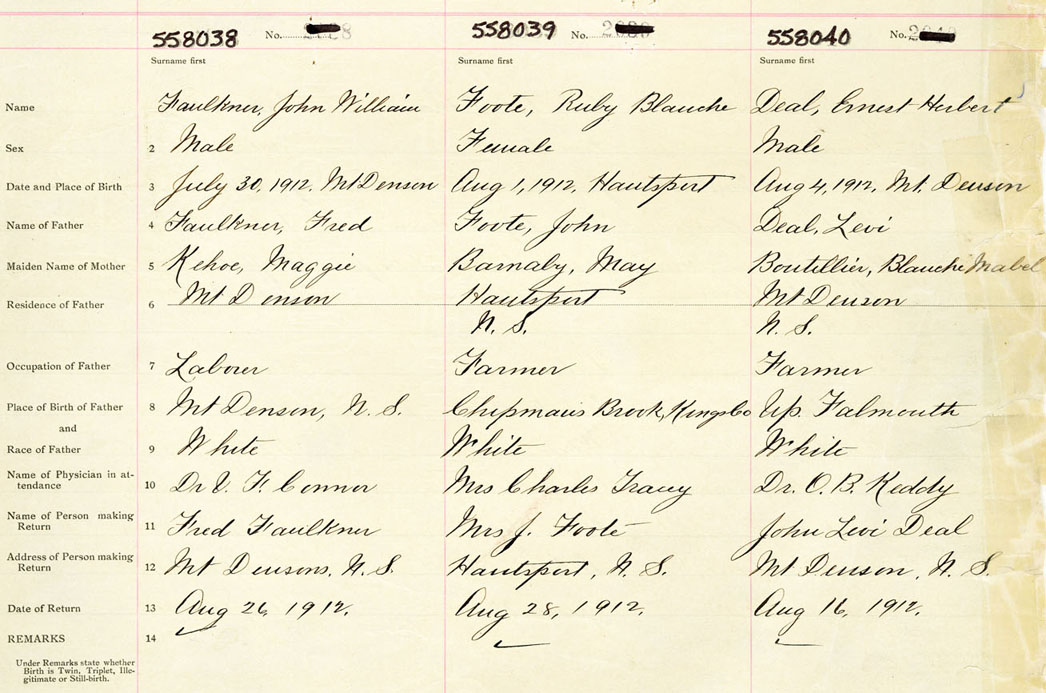 558038 No. 558039 No. 558040 No.
Surname first Surname first Surname first
Name Faulkner, John William Foote, Ruby Blanche Deal, Ernest Herbert
Sex 2 Male Female Male
Date and Place of Birth 3 July 30, 1912, Mt Denson Aug 1, 1912, Hantsport Aug 4, 1912, Mt. Denson
Name of Father 4 Faulkner, Fred Foote, John Deal, Levi
Maiden Name of Mother 5 Kehoe, Maggie Barnaby, May Boutillier, Blanche Mabel
Residence of Father 6 Mt Denson Hantsport Mt Denson
N. S. N. S.
Occupation of Father 7 Laborer Farmer Farmer
Place of Birth of Father 8 Mt Denson, N. S. Chipmans Brook, Kings Co Up. Falmouth
and
Race of Father 9 White White White
Name of Physician in at-
tendance 10 Dr. F. Connor Mrs Charles Tracey Dr. O. B. Keddy
Name of Person making
Return 11 Fred Faulkner Mrs J. Foote John Levi Deal
Address of Person making
Return 12 Mt Densons, N. S. Hantsport, N. S. Mt Denson, N. S.
Date of Return 13 Aug 26, 1912. Aug 28, 1912. Aug 16, 1912.
REMARKS 14
Under Remarks state whether
Birth is Twin, Triplet, Ille-
gitimate or Still-birth.